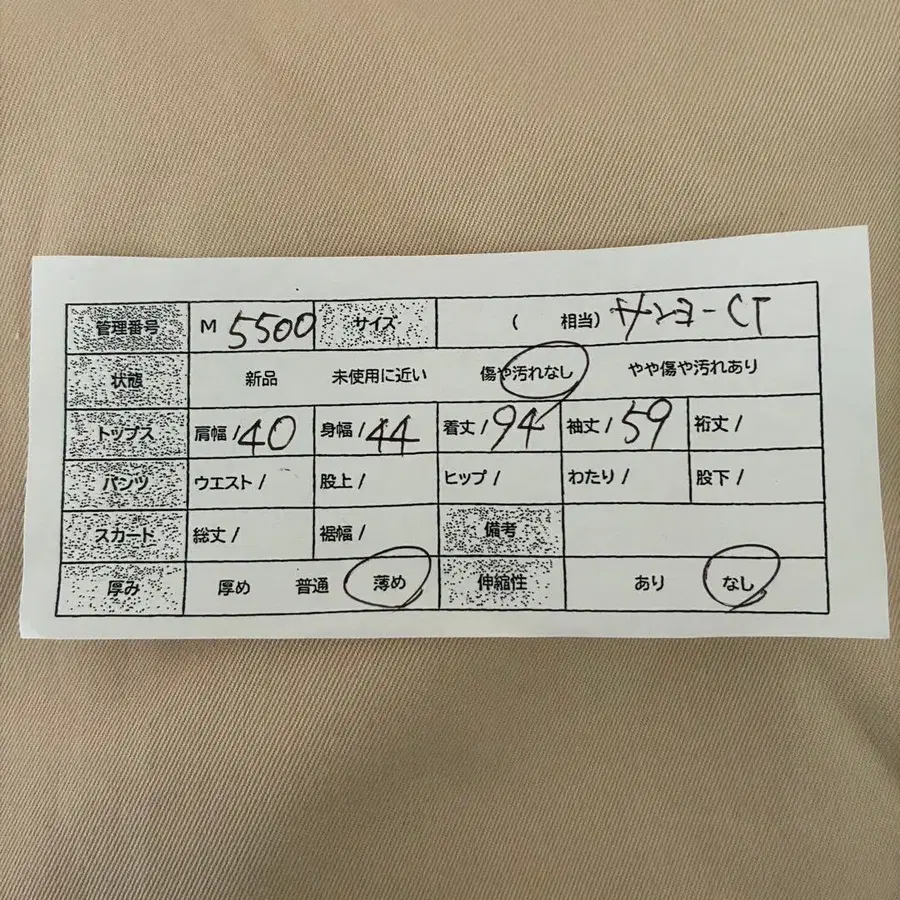 管理番号 M 5500 サイズ ( 相当) サンヨーCT
状態 新品 未使用に近い 傷や汚れなし やや傷や汚れあり
トップス 肩幅/40 身幅/44 着丈/94 袖丈/59 裄丈/
パンツ ウエスト/ 股上/ ヒップ/ わたり/ 股下/
スカート 総丈/ 裾幅/ 備考
厚み 厚め 普通 薄め 伸縮性 あり なし